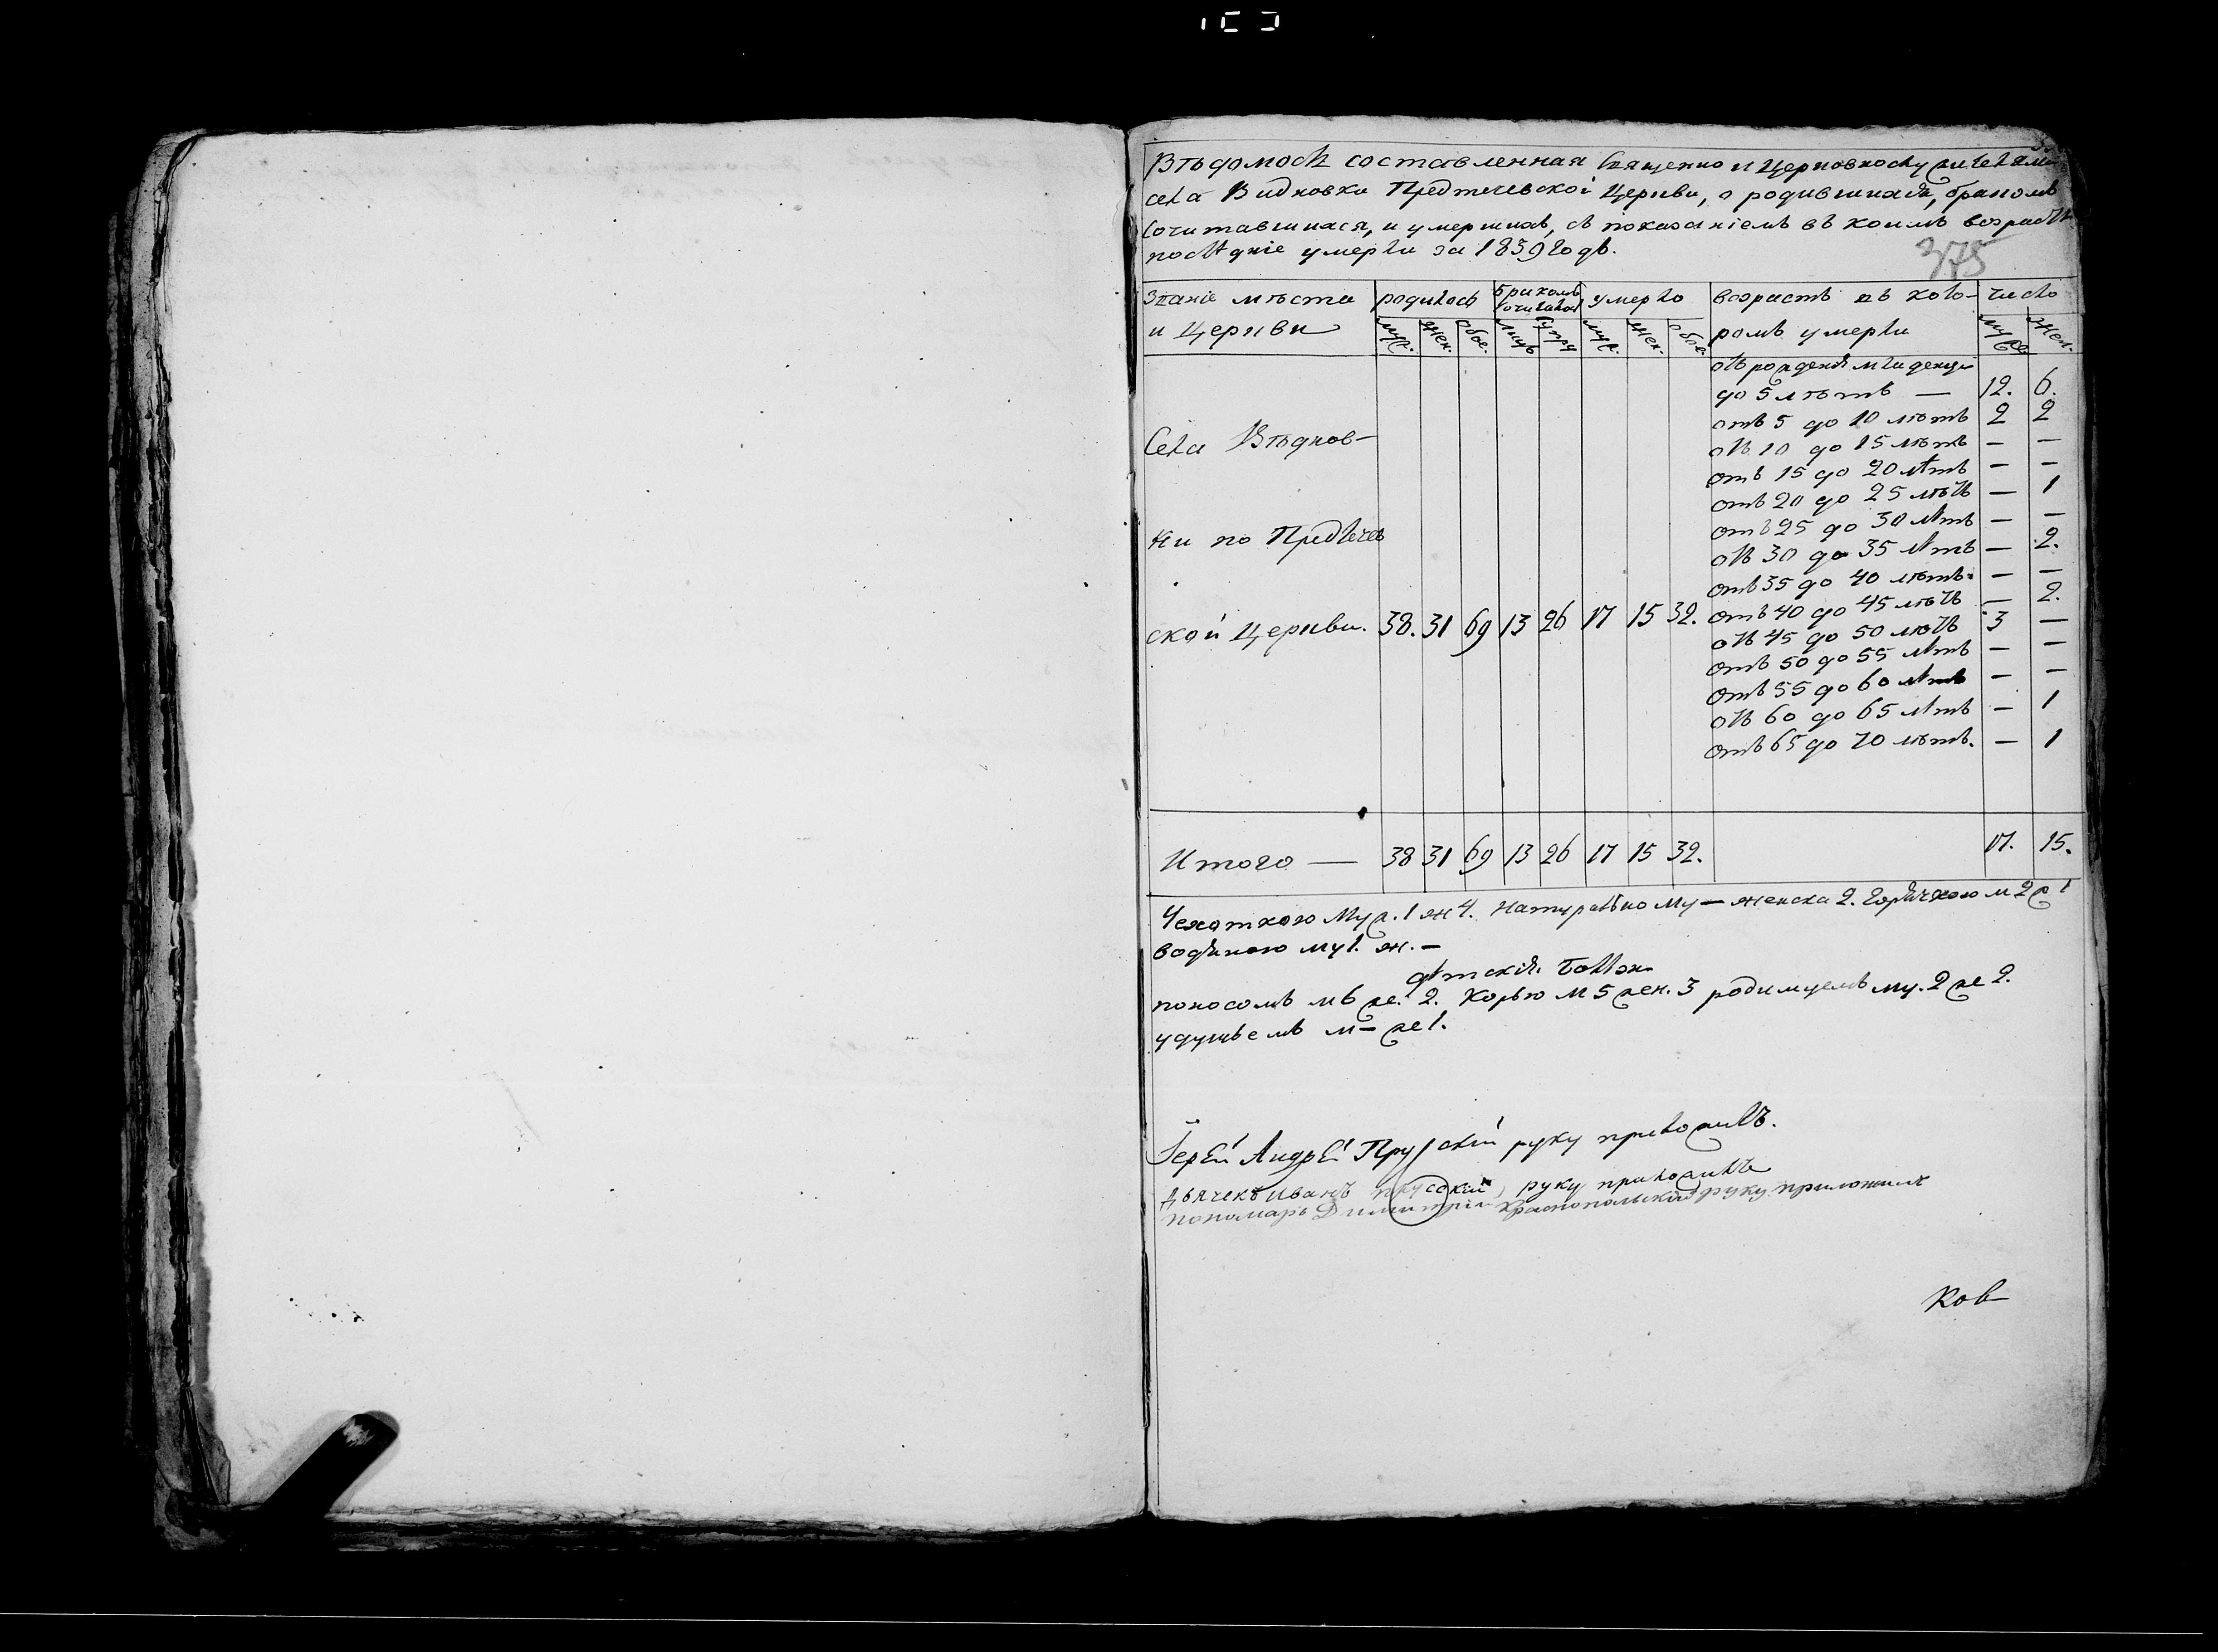 Вѣдомость составленная Священно и Церковнослужителями
села Видновки Предтечевской Церкви, о родившихся, бракомъ
сочитавшихся, и умершихъ, съ показаніемъ въ коимъ возрастѣ
послѣдніе умерли за 1839 годъ.
375
Званіе мѣста родилось бракомъ сочиталось умерло возрастъ въ кото- число
и Церкви муж. жен. обое. лицъ муж. жен. обое. ромъ умерли муж. жен.
отъ рожденія младенцы
до 5 лѣтъ — 12. 6.
отъ 5 до 10 лѣтъ 2 2
отъ 10 до 15 лѣтъ — —
Села Вѣднов-
отъ 15 до 20 лѣтъ — —
отъ 20 до 25 лѣтъ — 1
отъ 25 до 30 лѣтъ — —
ки по Предтечев
отъ 30 до 35 лѣтъ — 2.
отъ 35 до 40 лѣтъ. — —
отъ 40 до 45 лѣтъ — 2.
ской Церкви. 38. 31 69 13 26 17 15 32.
отъ 45 до 50 лѣтъ 3 —
отъ 50 до 55 лѣтъ — —
отъ 55 до 60 лѣтъ — —
отъ 60 до 65 лѣтъ — 1
отъ 65 до 70 лѣтъ. — 1
Итого — 38 31 69 13 26 17 15 32. 17. 15.
Чехоткою Муж. 1 ж 4. Натурально му — женска 2. Горячкою м 2 ж 1
водяною му 1. ж. —
дѣтскія. болѣзн.
поносомъ м 6 же. 2. Корью м 5 жен. 3 родимцемъ му. 2 же 2.
удушьемъ м — же 1.
Іерей Андрей Прусскій руку приложилъ.
Дьячекъ Иванъ прусскій руку приложилъ
пономарь Димитрій Краснопольскій руку приложилъ
Ков